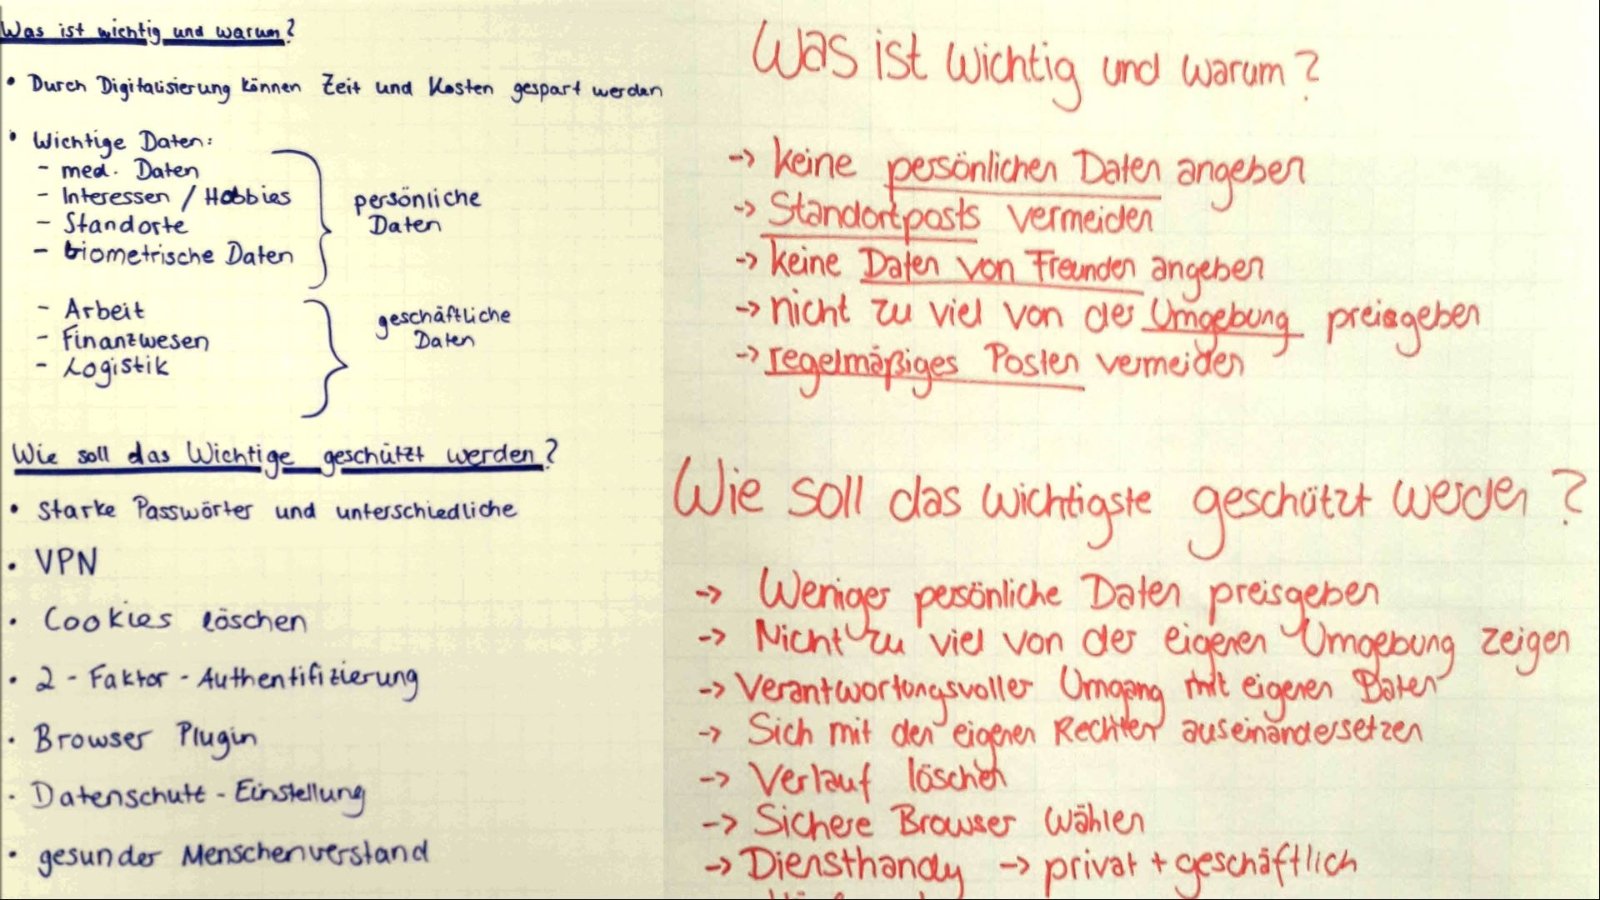 Was ist wichtig und warum?
• Durch Digitalisierung können Zeit und Kosten gespart werden
• Wichtige Daten:
- med. Daten
- Interessen / Hobbies
- Standorte
- biometrische Daten
persönliche
Daten
- Arbeit
- Finanzwesen
- Logistik
geschäftliche
Daten
Wie soll das Wichtige geschützt werden?
• starke Passwörter und unterschiedliche
• VPN
• Cookies löschen
• 2-Faktor-Authentifizierung
• Browser Plugin
• Datenschutt-Einstellung
• gesunder Menschenverstand
Was ist wichtig und warum?
-> keine persönlichen Daten angeben
-> Standortposts vermeiden
-> keine Daten von Freunden angeben
-> nicht zu viel von der Umgebung preisgeben
-> regelmäßiges Posten vermeiden
Wie soll das wichtigste geschützt werden?
-> Weniger persönliche Daten preisgeben
-> Nicht zu viel von der eigenen Umgebung zeigen
-> Verantwortungsvoller Umgang mit eigenen Daten
-> Sich mit den eigenen Rechten auseinandersetzen
-> Verlauf löschen
-> Sichere Browser wählen
-> Diensthandy -> privat + geschäftlich